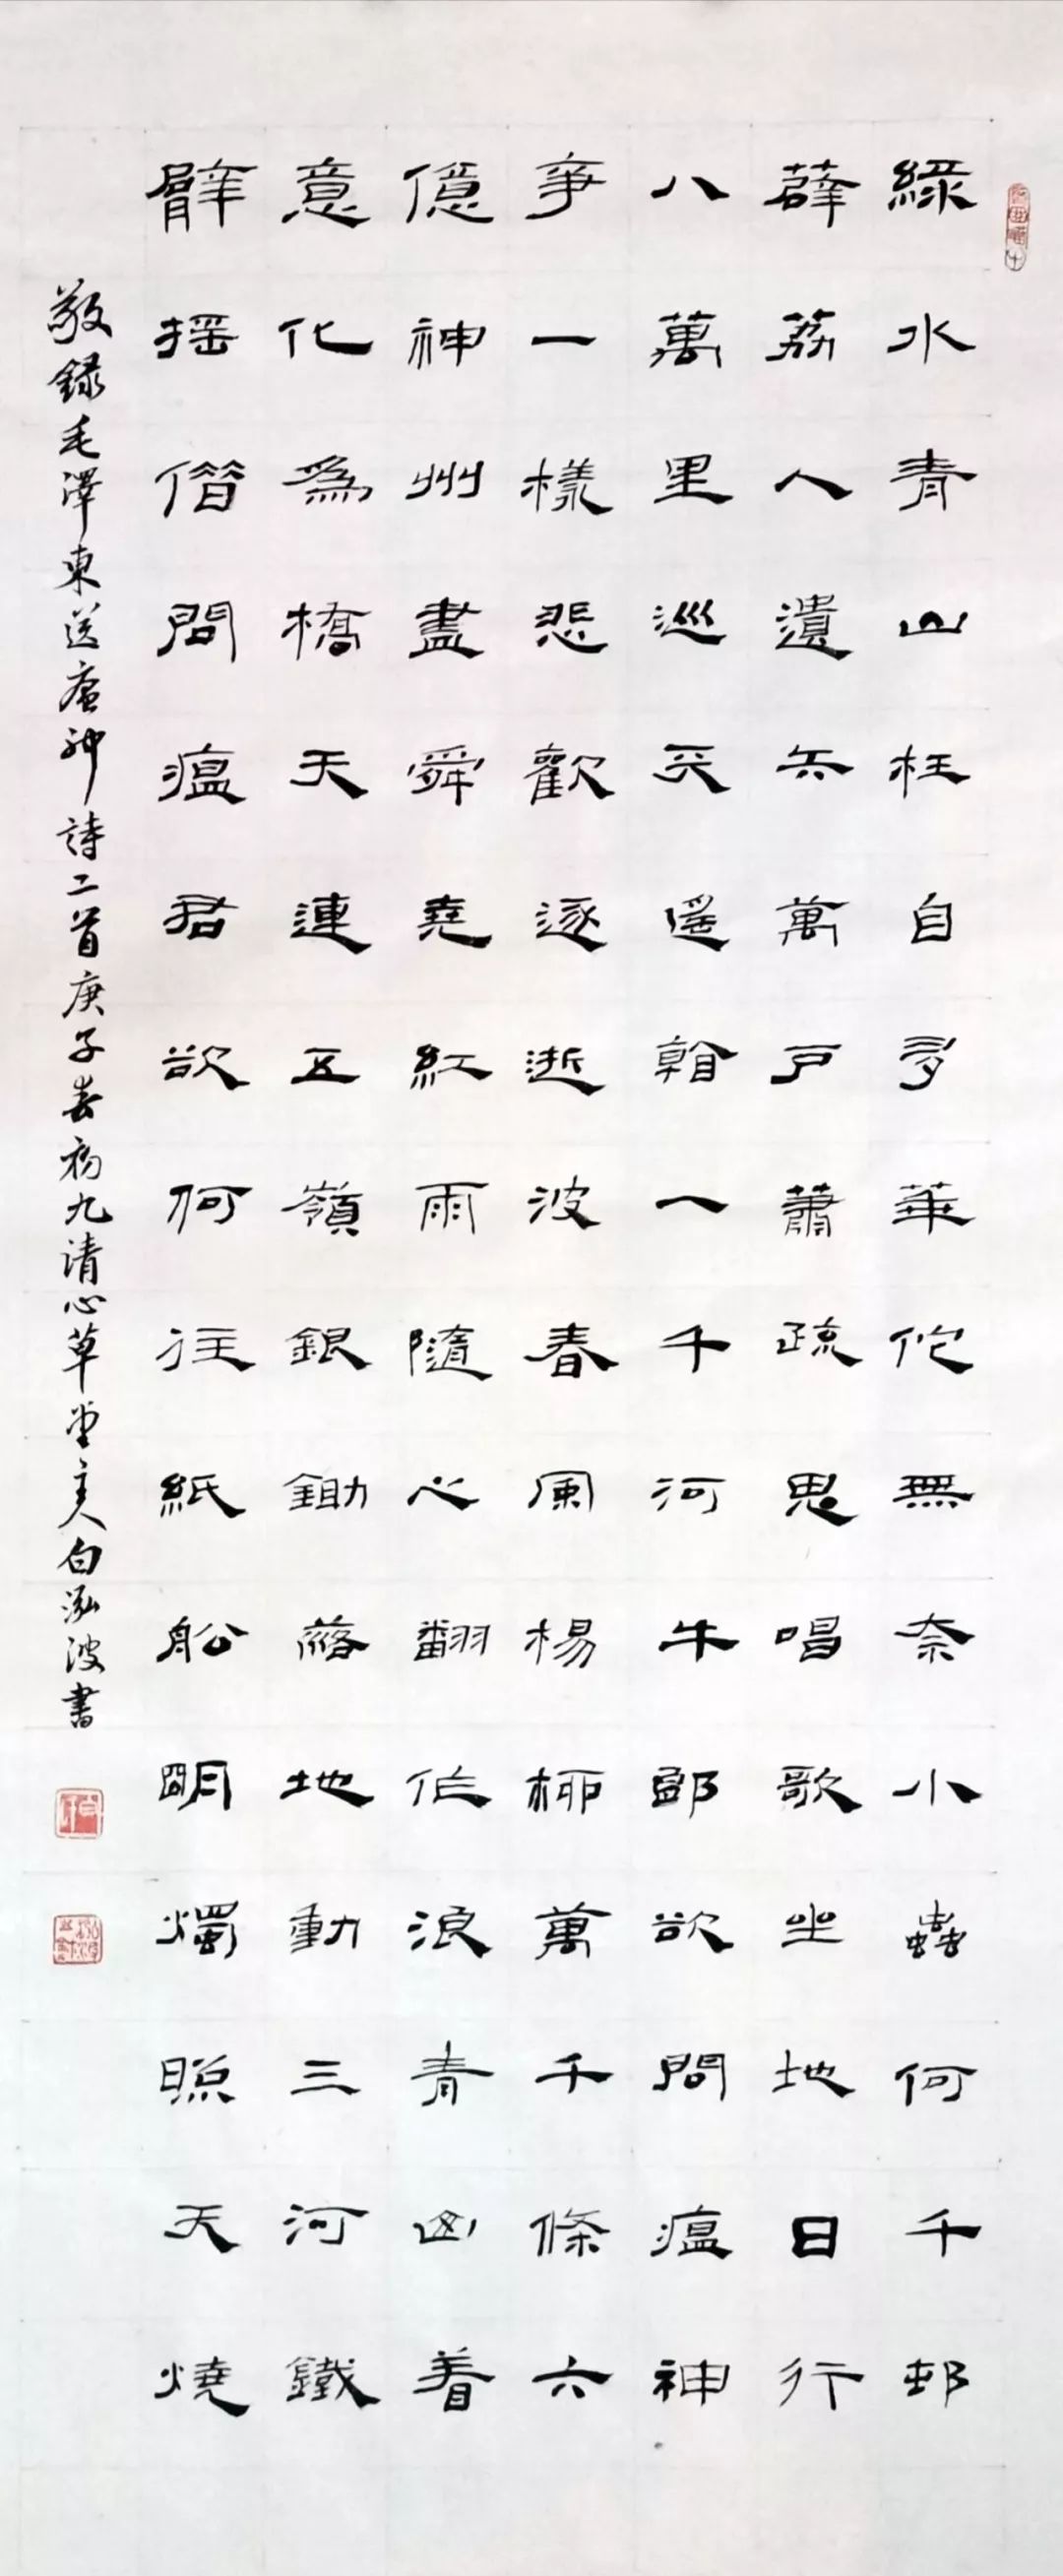 綠水青山枉自多華佗無奈小蟲何千邨
薜荔人遺矢萬戶蕭疏鬼唱歌坐地日行
八萬里巡天遙看一千河牛郎欲問瘟神
爭一樣悲歡逐逝波春風楊柳萬千條六
億神州盡舜堯紅雨隨心翻作浪青山着
意化為橋天連五嶺銀鋤落地動三河鐵
臂搖借問瘟君欲何往紙船明燭照天燒
敬錄毛澤東送瘟神詩二首庚子春初九清心草堂主人白泓波書